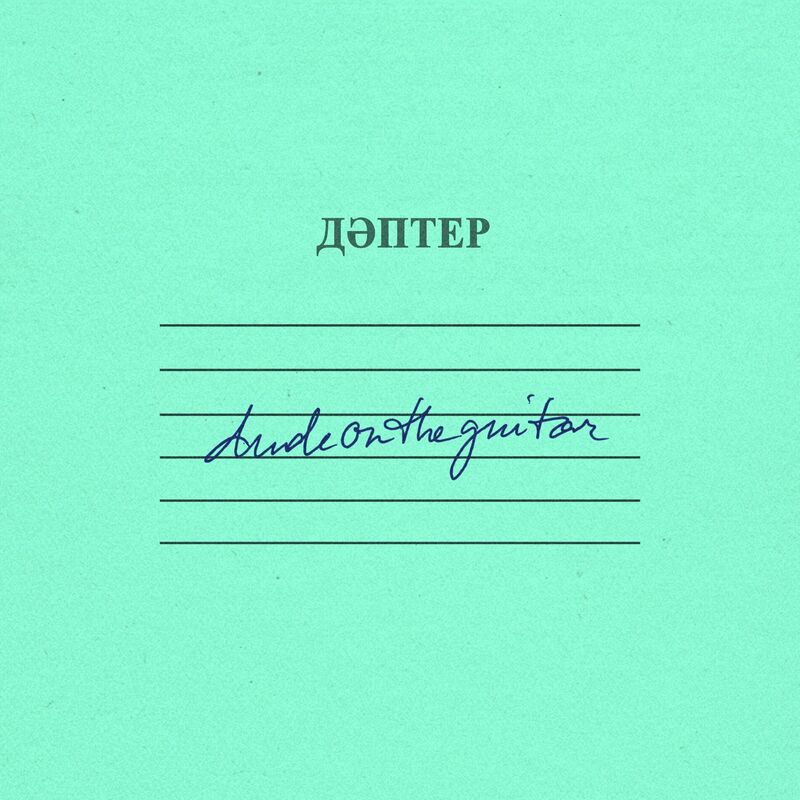 ДӘПТЕР
dudeontheguitar